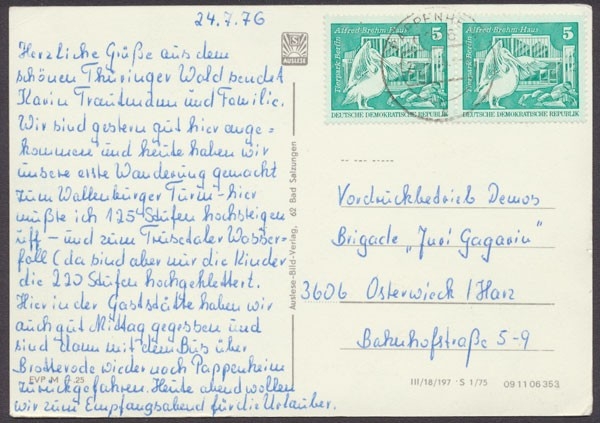 24.7.76
Herzliche Grüße aus dem
schönen Thüringer Wald sendet
Karin Trautmann und Familie.
Wir sind gestern gut hier ange=
kommen und heute haben wir
unsere erste Wanderung gemacht
zum Wallenburger Turm – hier
mußte ich 125 Stufen hochsteigen
uff – und zum Trusetaler Wasser-
fall (da sind aber nur die Kinder
die 220 Stufen hochgeklettert.
Hier in der Gaststätte haben wir
auch gut Mittag gegessen und
sind dann mit dem Bus über
Brotterode wieder nach Pappenheim
zurückgefahren. Heute abend wollen
wir zum Empfangsabend für die Urlauber.
EVP M -.25
AUSLESE
Auslese-Bild-Verlag, 62 Bad Salzungen
Alfred-Brehm-Haus 5
Tierpark Berlin
DEUTSCHE DEMOKRATISCHE REPUBLIK
Alfred-Brehm-Haus 5
Tierpark Berlin
DEUTSCHE DEMOKRATISCHE REPUBLIK
Vordruckbetrieb Demos
Brigade „Juri Gagarin"
3606 Osterwieck / Harz
Bahnhofstraße 5-9
III/18/197 · S 1/75 09 11 06 353